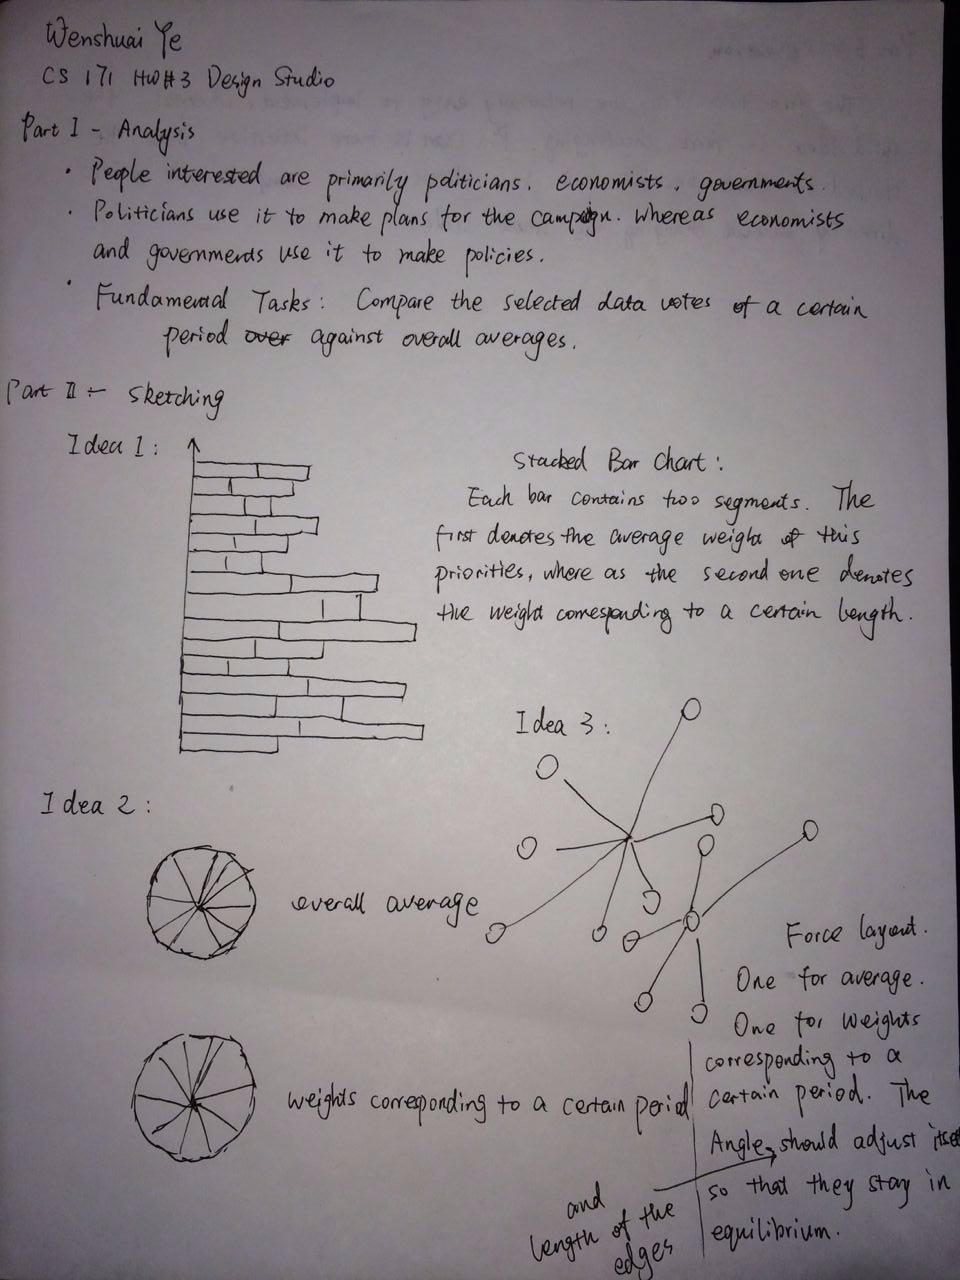 Wenshuai Ye
CS 171 HW#3 Design Studio
Part I - Analysis
· People interested are primarily politicians, economists, governments.
· Politicians use it to make plans for the campaign. Whereas economists
and governments use it to make policies.
· Fundamental Tasks: Compare the selected data votes of a certain
period over against overall averages.
Part II - Sketching
Idea 1:
Stacked Bar Chart:
Each bar contains two segments. The
first denotes the average weight of this
priorities, where as the second one denotes
the weight corresponding to a certain length.
Idea 2:
overall average
weights corresponding to a certain period
Idea 3:
Force layout.
One for average.
One for weights
corresponding to a
certain period. The
Angle should adjust itself
so that they stay in
equilibrium.
and
length of the
edges